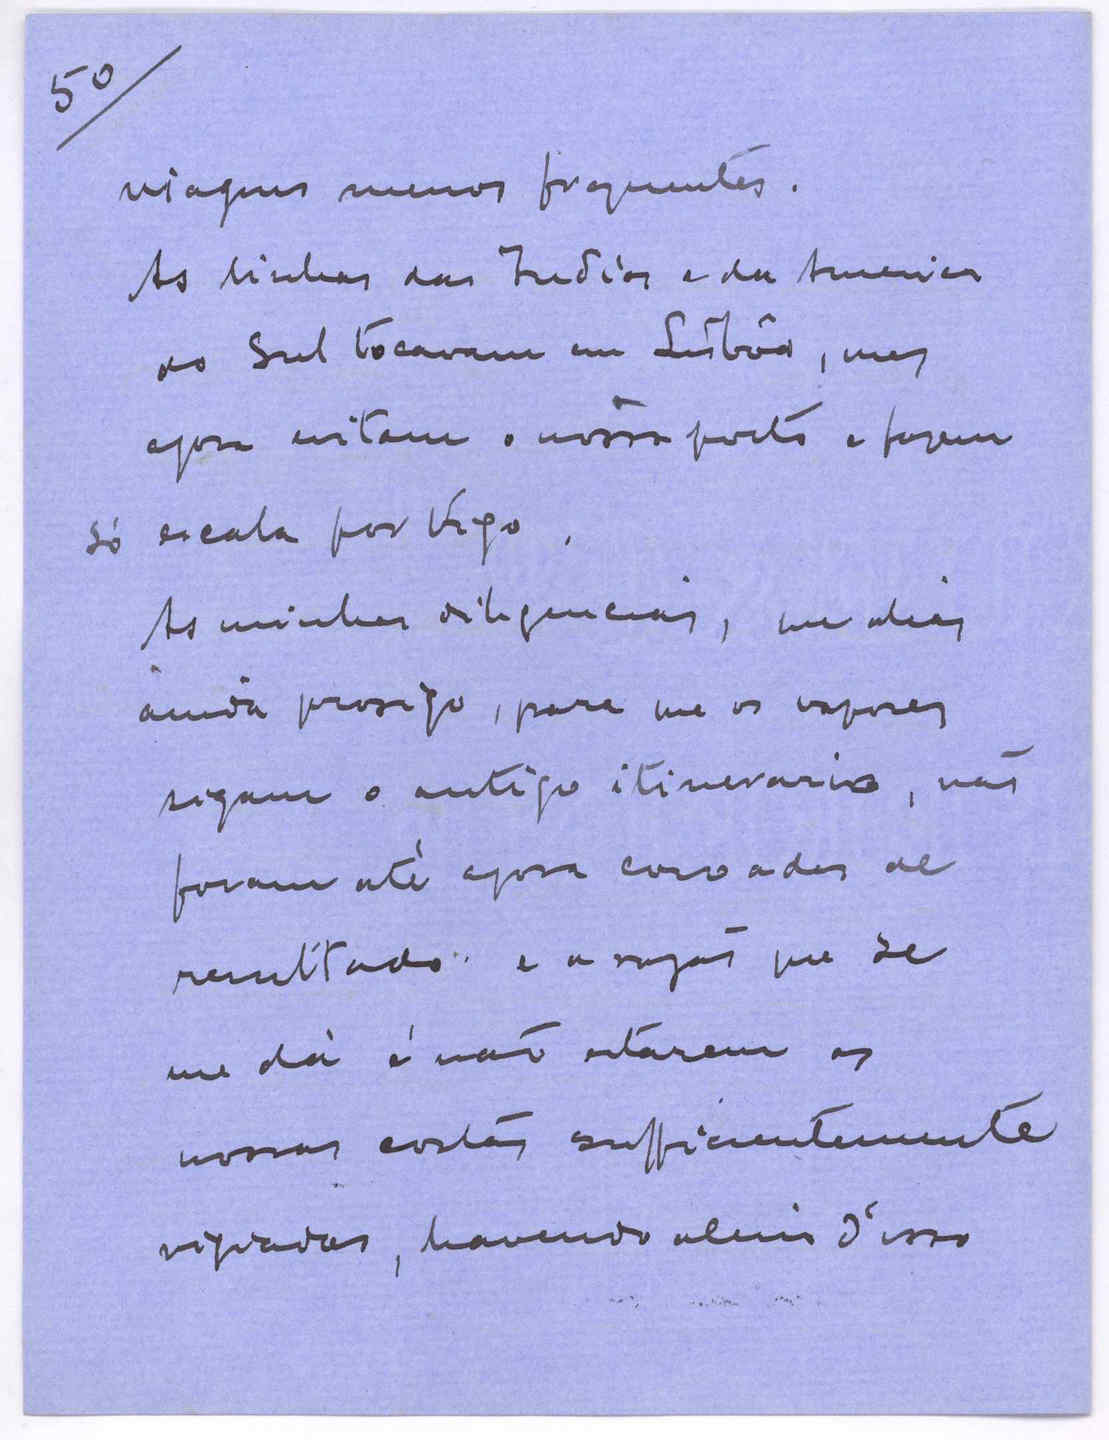 50
viagens menos frequentes.
As linhas das Indias e da America
do Sul tocavam em Lisbôa, mas
agora evitam o nosso porto e fazem
só escala por Vigo.
As minhas diligencias, que alias
ainda prosigo, para que os vapores
sigam o antigo itinerario, não
foram até agora coroadas de
resultado e a razão que se
me dá é não estarem as
nossas costas sufficientemente
vigiadas, havendo alem d'isso